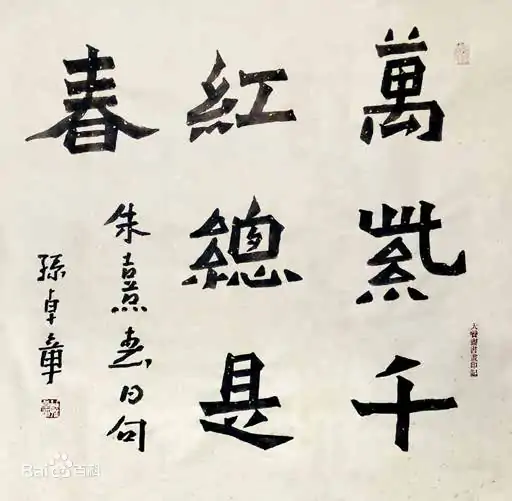 萬紫千
紅總是
春
朱熹春日句
孫卓章
書畫印記
Bai百科